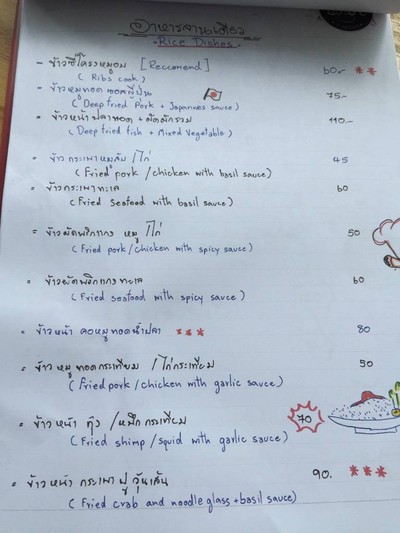 อาหารจานเดียว
- Rice Dishes -
- ข้าวซี่โครงหมูอบ [Reccomend] 60.- **
( Ribs cook )
- ข้าวหมูทอด ซอสญี่ปุ่น 75.-
( Deep fried Pork + Japanies sauce )
- ข้าวหน้าปลาทอด + ผัดผักรวม 110.-
( Deep fried fish + Mixed Vegetable )
- ข้าว กระเพาหมูสับ / ไก่ 45
( Fried pork / chicken with basil sauce )
- ข้าวกระเพาทะเล 60
( Fried seafood with basil sauce )
- ข้าวผัดพริกแกง หมู / ไก่ 50
( Fried pork / chicken with spicy sauce )
- ข้าวผัดพริกแกงทะเล 60
( Fried seafood with spicy sauce )
- ข้าวหน้า คอหมูทอดน้ำปลา *** 80
- ข้าว หมูทอดกระเทียม / ไก่กระเทียม 50
( Fried pork / chicken with garlic sauce )
- ข้าว หน้า กุ้ง / หมึก กระเทียม 70
( Fried shimp / squid with garlic sauce )
- ข้าว หน้า กระเพา ปู วุ้นเส้น 90. ***
( Fried crab and noodle glass + basil sauce )